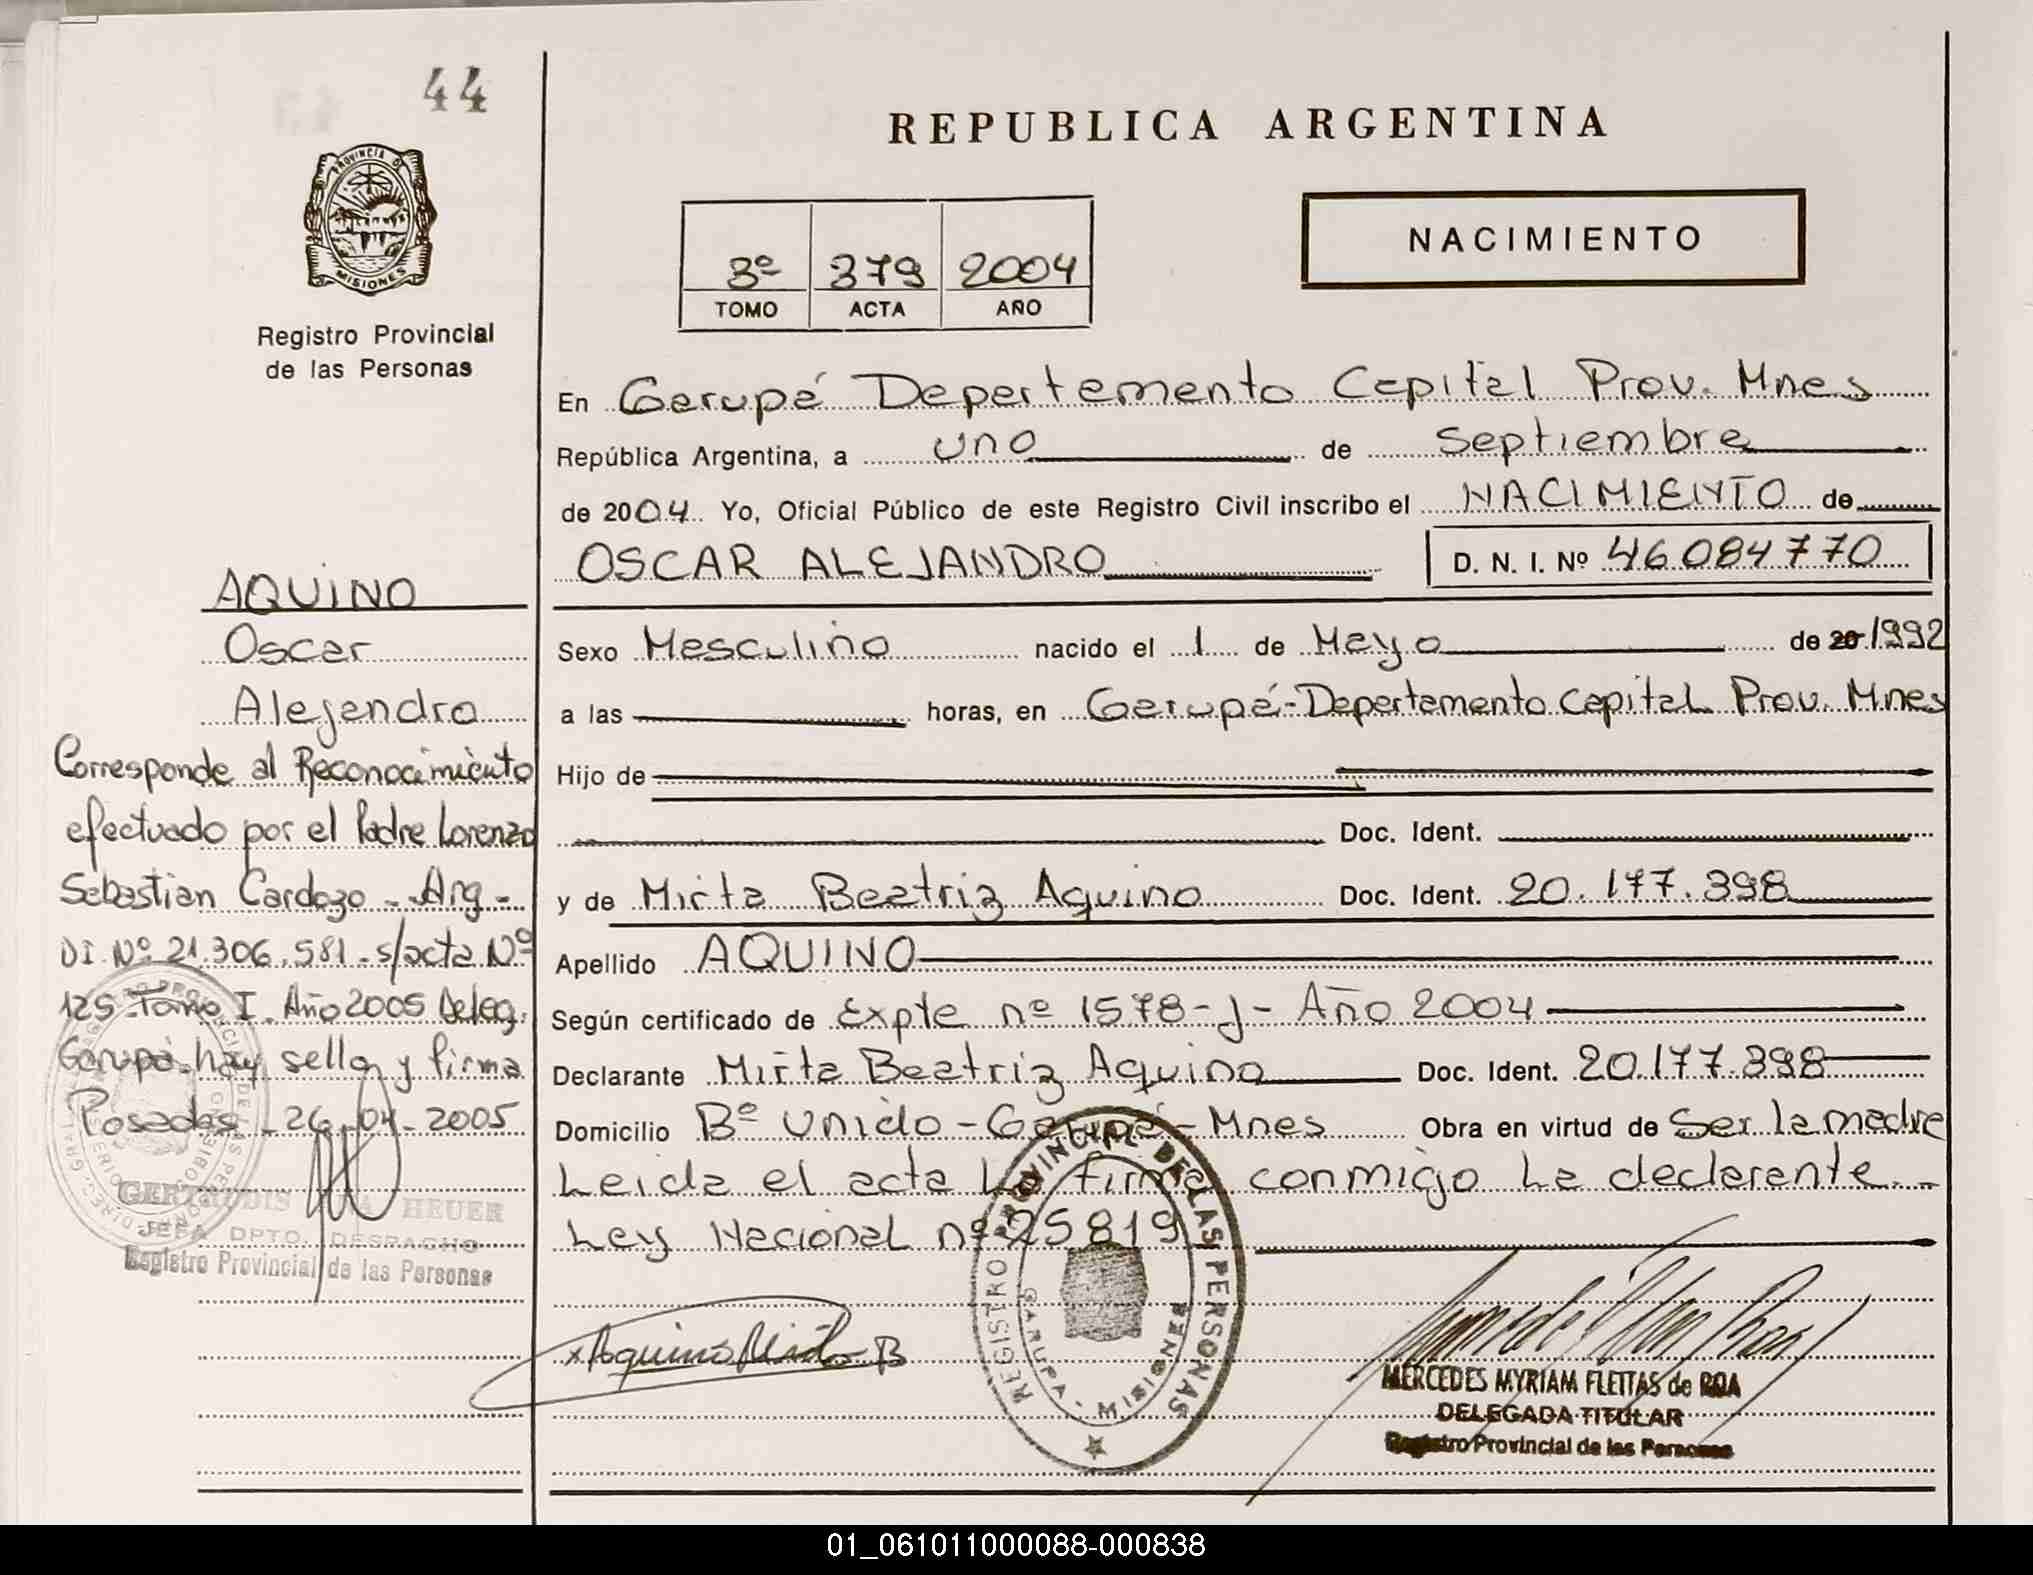 44
PROVINCIA DE
MISIONES
Registro Provincial
de las Personas
REPUBLICA ARGENTINA
3º 379 2004
TOMO ACTA AÑO
NACIMIENTO
En Garupá Departamento Capital Prov. Mnes
República Argentina, a uno de septiembre
de 2004 Yo, Oficial Público de este Registro Civil inscribo el NACIMIENTO de
OSCAR ALEJANDRO D. N. I. Nº 46.084770
Sexo Masculino nacido el 1 de Mayo de 20 1992
a las horas, en Garupá-Departamento Capital Prov. Mnes
Hijo de
Doc. Ident.
y de Mirta Beatriz Aquino Doc. Ident. 20.177.398
Apellido AQUINO
Según certificado de Expte nº 1578-J- Año 2004
Declarante Mirta Beatriz Aquino Doc. Ident. 20.177.398
Domicilio Bº Unido - Garupá - Mnes Obra en virtud de Ser la madre
Leida el acta La firma conmigo La declarante.-
Ley Nacional nº 25819
AQUINO
Oscar
Alejandro
Corresponde al Reconocimiento
efectuado por el Padre Lorenzo
Sebastian Cardozo - Arg -
DI Nº 21.306.581 - s/acta Nº
125 Tomo I. Año 2005 Deleg.
Garupá. hay sello y firma
Posadas - 26-04-2005
GERTRUDIS HEUER
JEFA DPTO. DESPACHO
Registro Provincial de las Personas
x Aquino Mirta B
REGISTRO PROVINCIAL DE LAS PERSONAS
GARUPA - MISIONES
MERCEDES MYRIAM FLEITAS de ROA
DELEGADA TITULAR
Registro Provincial de las Personas
01_061011000088-000838